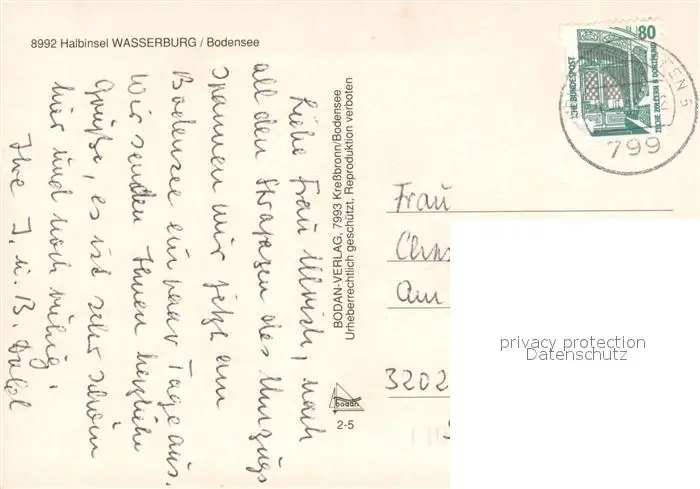 8992 Halbinsel WASSERBURG / Bodensee
Liebe Frau Ullrich, nach
all den Strapazen des Umzugs
spannen wir jetzt am
Bodensee ein paar Tage aus.
Wir senden Ihnen herzliche
Grüße, es ist sehr schön
hier und noch ruhig.
Ihre J. u. B.
BODAN-VERLAG, 7993 Kreßbronn/Bodensee
Urheberrechtlich geschützt, Reproduktion verboten
bodan
2-5
80
DEUTSCHE BUNDESPOST
ZECHE ZOLLERN II DORTMUND
799
Frau
Am
3202
privacy protection
Datenschutz